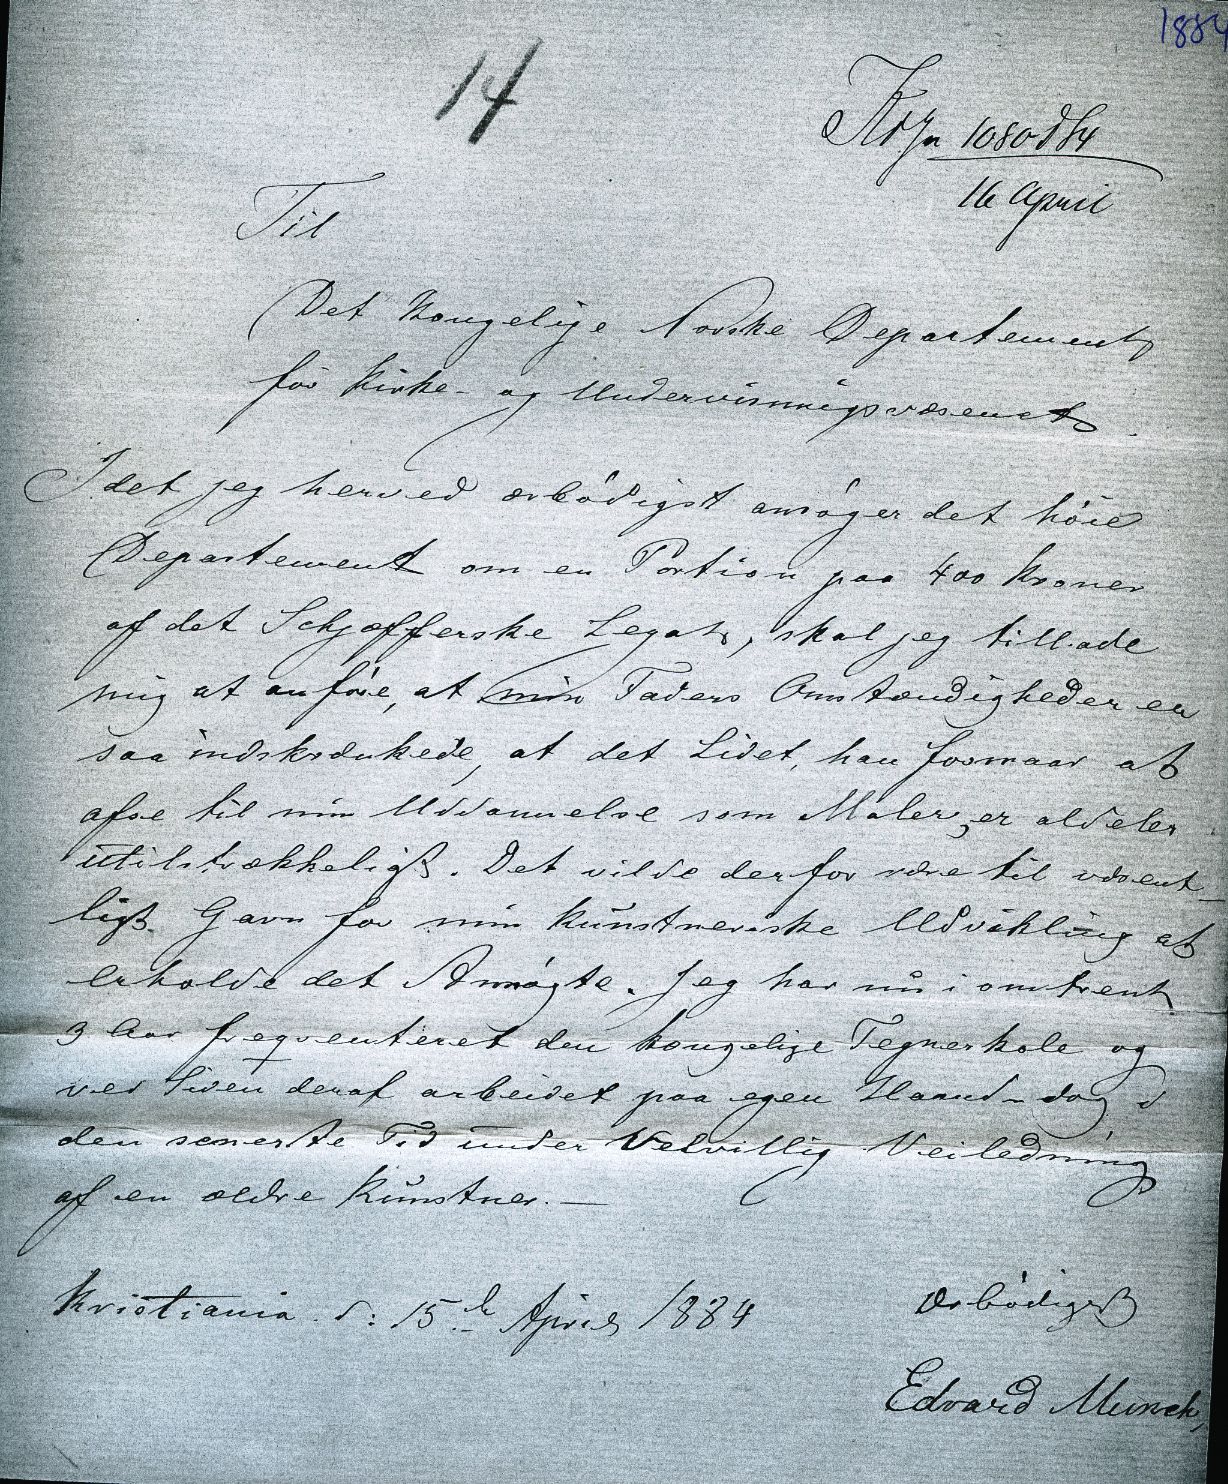 1884
14
1080 d 84
16 April
Til
Det Kongelige Norske Departement
for Kirke- og Undervisningsvæsenet.
Idet jeg herved ærbödigst ansöger det höie
Departement om en Portion paa 400 Kroner
af det Schjæfferske Legat, skal jeg tillade
mig at anföre, at min Faders Omstændigheder er
saa indskrænkede, at det Lidet, han formaar at
afse til min Uddannelse som Maler, er aldeles
utilstrækkeligt. Det vilde derfor være til væsent-
ligt Gavn for min kunstneriske Udvikling at
erholde det Ansögte. Jeg har nu i omtrent
3 Aar freqventeret den kongelige Tegneskole og
ved Siden deraf arbeidet paa egen Haand – dog i
den seneste Tid under Velvillig Veiledning
af en ældre Kunstner. —
Kristiania d: 15de April 1884
ærbödigst
Edvard Munch